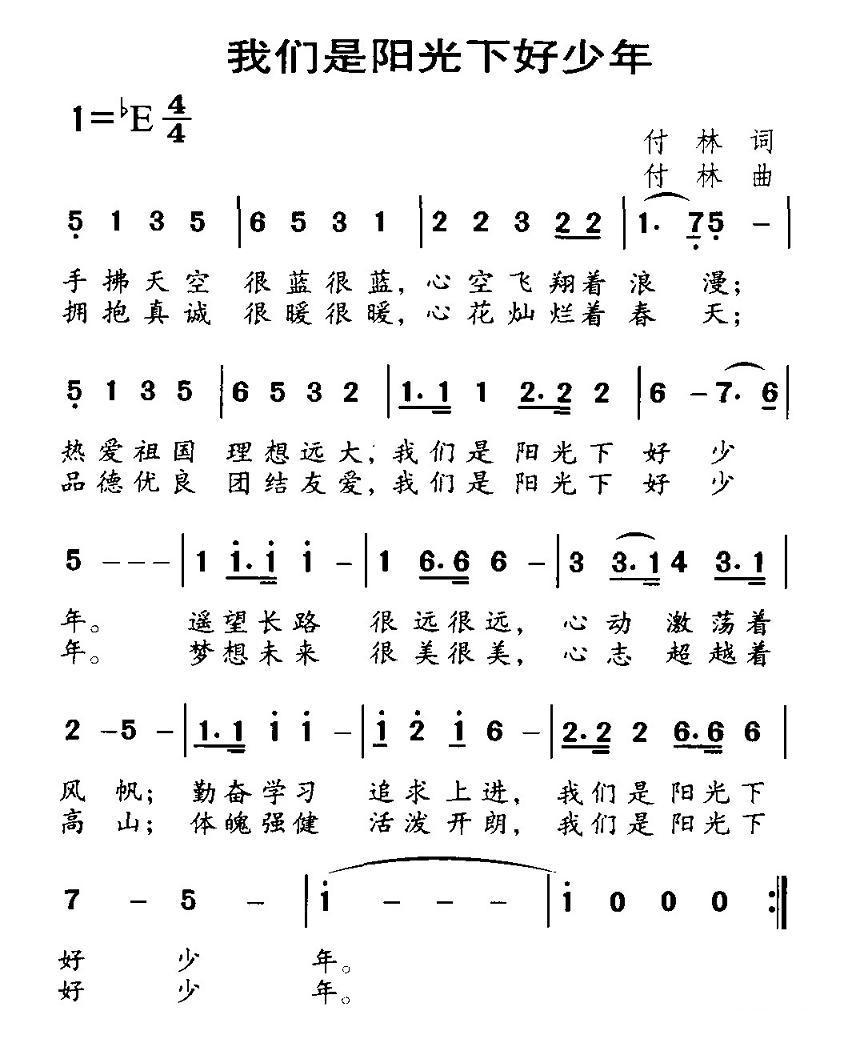 我们是阳光下好少年
1=♭E 4/4
付 林 词
付 林 曲
5̣ 1 3 5 | 6 5 3 1 | 2 2 3 2 2 | 1. 7̣ 5̣ - |
手拂天空 很蓝很蓝，心空飞翔着浪 漫；
拥抱真诚 很暖很暖，心花灿烂着春 天；
5̣ 1 3 5 | 6 5 3 2 | 1. 1 1 2. 2 2 | 6 - 7. 6 |
热爱祖国 理想远大，我们是 阳光下 好 少
品德优良 团结友爱，我们是 阳光下 好 少
5 - - - | 1 i. i i - | 1 6. 6 6 - | 3 3. 1 4 3. 1 |
年。 遥望长路 很远很远， 心动 激荡着
年。 梦想未来 很美很美， 心志 超越着
2 - 5 - | 1. 1 i i - | i 2̇ i 6 - | 2. 2 2 6. 6 6 |
风 帆； 勤奋学习 追求上进， 我们是 阳光下
高 山； 体魄强健 活泼开朗， 我们是 阳光下
7 - 5 - | i - - - | i 0 0 0 :||
好 少 年。
好 少 年。